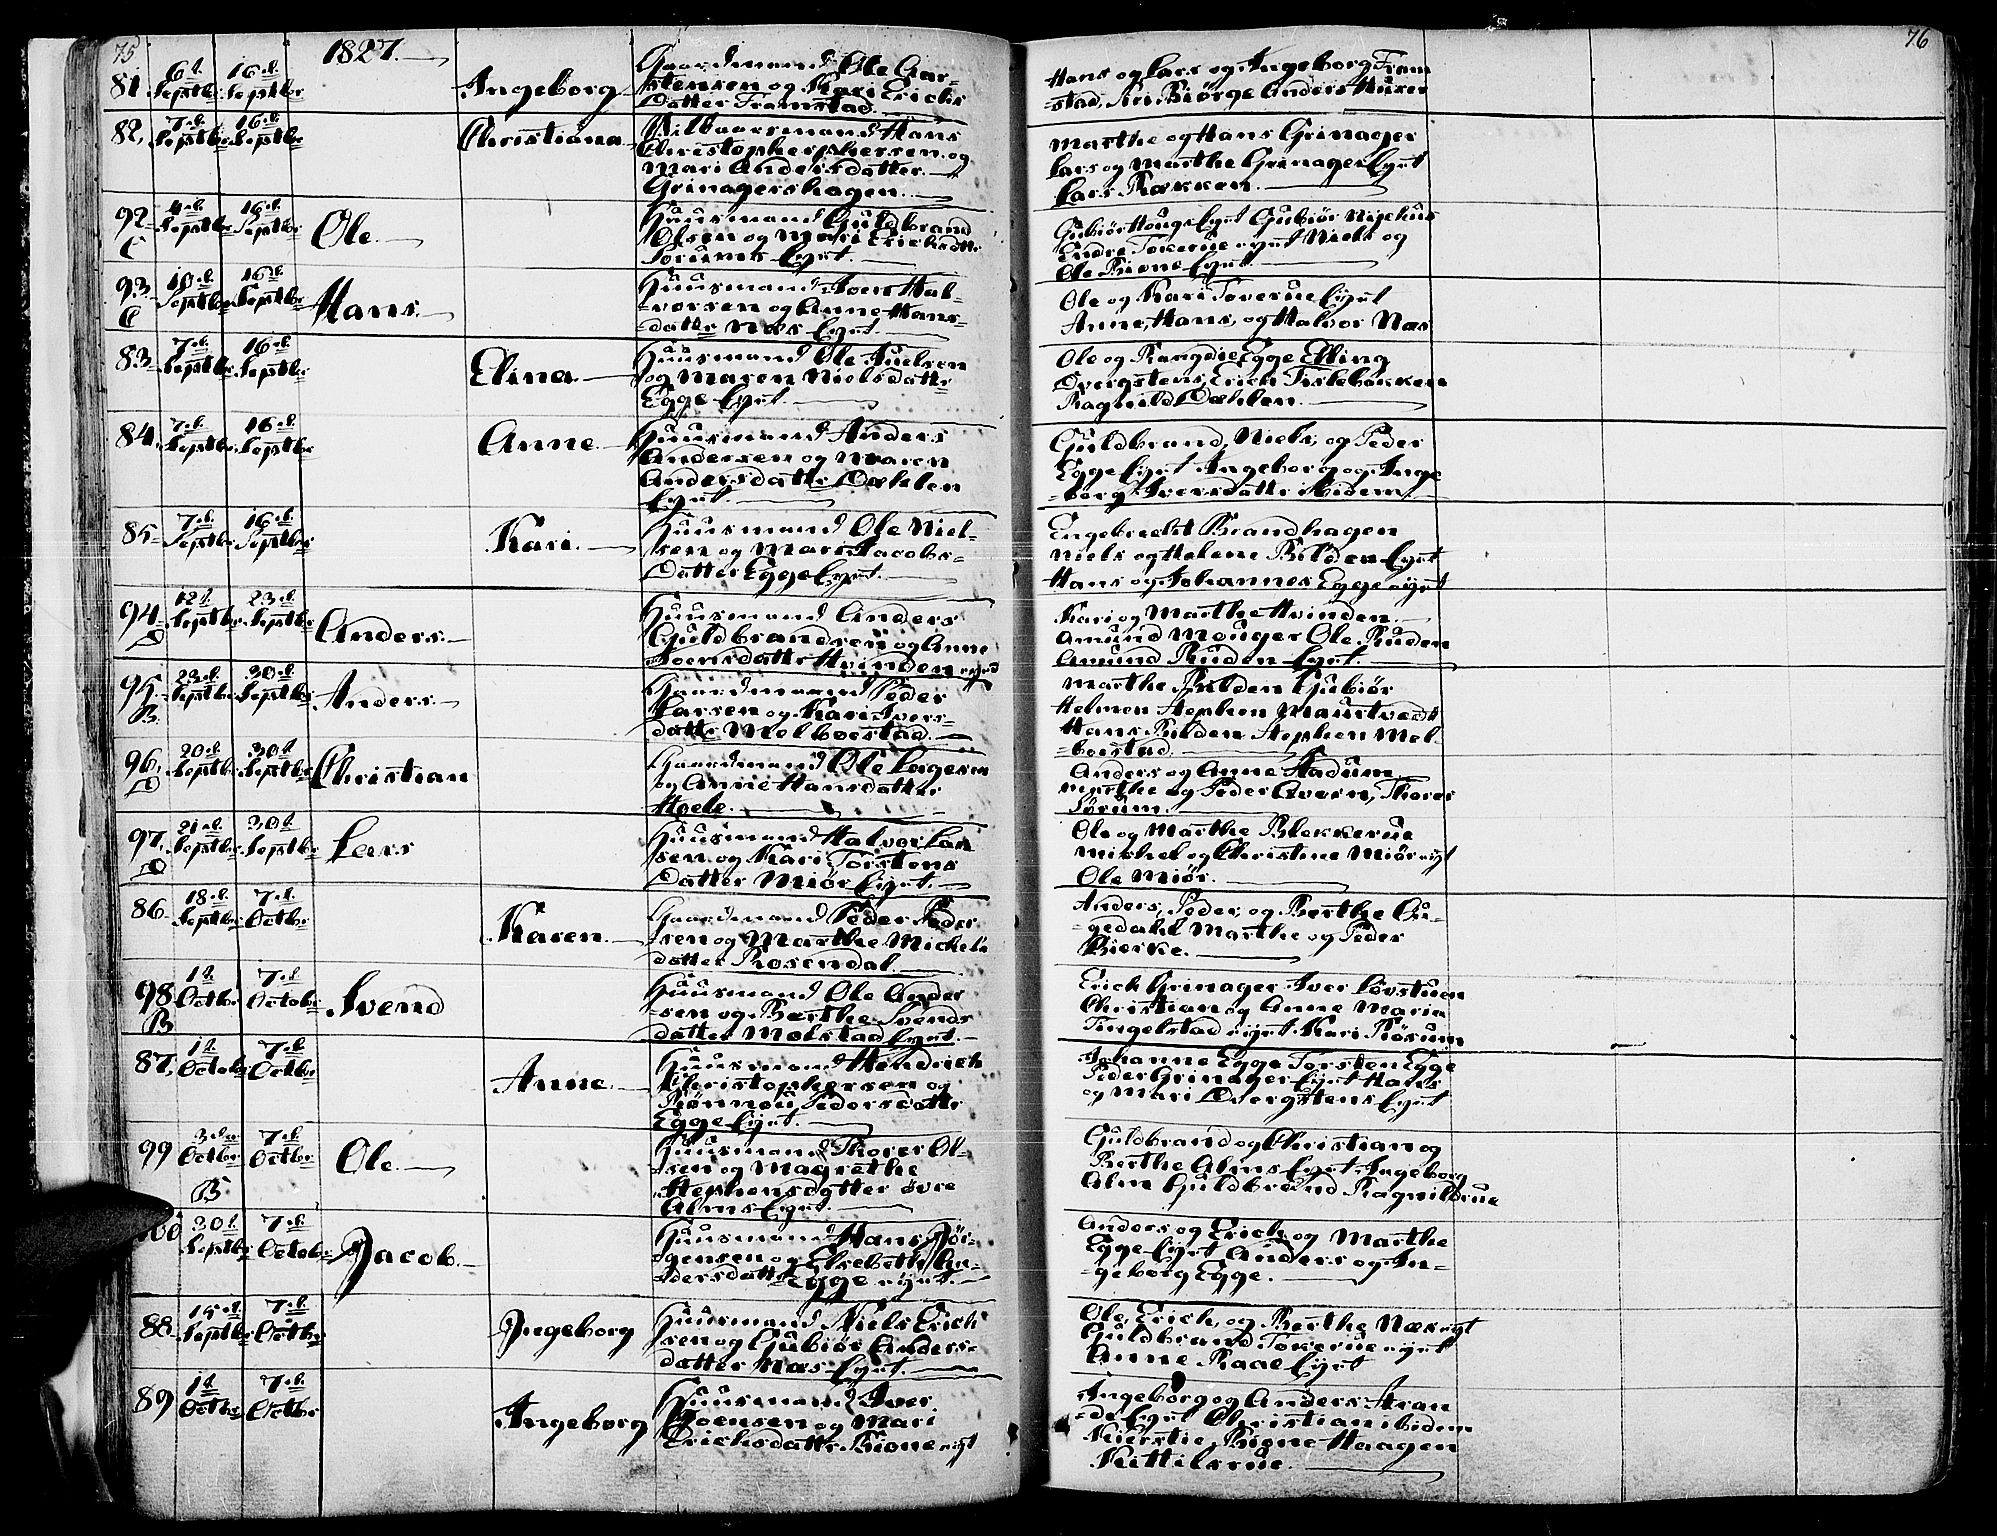 75
1827.
76
81 6t. Septbr 16.d. Septbr Ingeborg
Gaardmand Ole Gar-
stensen og Kari Erichs
Datter Framstad.
Hans og Lars og Ingeborg Fram
-stad, Siri Biörge Anders
82, 7.d. Septbr 16.d. Septbr Christiana
Hans
og
Mari Andersdatter
Grinagershagen.
Marthe og Hans Grinager
Lars og Marthe Grinager Eyet
Lars Rækken
92 C Septbr 16.d. Septbr Ole.
Huusmand Guldbrand
Olsen og Mari Erichsdttr
Eyet.
Gubiör Houge Eyet Gubiör
Endre eyet Niels og
Ole Eyet
93 C 10.d. Septbr 16.d. Septbr Hans.
Huusmand Iver Hal-
-vorsen og Anne Hans-
-dattr Næs Eyet.
Ole og Kari Eyet
Anne, Hans, og Halvor Næs
83 7.d. Septbr 16.d. Septbr Elina.
Huusmand Ole Juelsen
og Maren Nielsdattr
Egge Eyet.
Ole og Rangdie Egge Elling
Dvergstens, Erich Tislebakken
Ragnild Dæhlen.
84. 7.d. Septbr 16.d. Septbr Anne.
Huusmand Anders
Andersen og Maren
Andersdattr Dæhlen
Eyet
Guldbrand, Niels, og Peder
Egge Eyet Ingeborg og Inge
-borg Iversdattr ibidem
85 7.d. Septbr 16.d. Septbr Kari.
Huusmand Ole Niel-
sen og Mari Jacobs-
Datter Egge Eyet.
Engebredt Brandhagen
Niels og Helene Bilden Eyet
Hans og Johannes Egge eyet
94 D 12t. Septbr 23.d. Septbr Anders.
Huusmand Anders
Guldbrandsen og Anne
Joensdattr Hvinden eyed
Kari og Marthe Hvinden.
Amund Mouger Ole Ruden
Amund Ruden Eyet.
95. B. 23.d. Septbr 30.d. Septbr Anders.
Gaardmand Peder
Larsen og Kari Ivers-
-dattr Melboestad.
Marthe Bilden Gubiör
Helmen Stephen
Hans Bilden Stephen Mel-
-boestad.
96, D 20.d. Septbr 30t Septbr Christian
Gaardmand Ole
og Anne Hansdatter
Hoele.
Anders og Anne Hadum
Marthe og Peder, Thorer
Sörum.
97, D 21.d. Septbr 30t Septbr Lars
Huusmand Halvor Lar
sen og Kari Torstens
Datter Miör Eyet.
Ole og Marthe Blekkerue
Michel og Christine Miör eyt
Ole Miör.
86 18.d. Septbr 7.d. Octbr Karen.
Gaardmand Peder Peder-
-sen og Marthe Michels
datter Rosendal.
Anders, Peder, og Berthe Ou-
-gedahl Marthe og Peder
Bierke.
98 B 1t. Octbr 7.d. Octobr Svend
Huusmand Ole Ander
-sen og Berthe Svends
datter Molstad Eyet.
Erich Grinager Iver Lövstuen
Christian og Anne Maria
Tingelstad eyet Kari Rösum
87, 1t. Octobr 7.d. Octbr Anne.
Huusmand Hendrich
Christophersen og
Rönnau Pedersdattr
Egge Eyet.
Johanne Egge Torsten Egge
Peder Grinager Eyet Hans
og Mari Dvergstens Eyet
99 B 3der Octbr 7.d. Octbr Ole.
Huusmand Thorer Ol-
-sen og Magrethe
Stephensdatter övre
Alms Eyet.
Guldbrand og Christian og
Berthe Alms Eyet, Ingeborg
Alm Guldbrand Ragnildrue
100 30t. Septbr 7.d. Octobr Jacob.
Huusmand Hans Jör-
-gensen og Elsebeth An-
-dersdattr Egge eyet.
Anders og Erich og Marthe
Egge Eyet Anders og In-
-geborg Egge.
88. 15.d. Septbr 7.d. Octbr Ingeborg
Huusmand Niels Erich
sen og Gubiör Anders-
datter Næs Eyet.
Ole, Erich, og Berthe Næs eyt
Guldbrand eyet
Anne Raae Eyet
89 1t Octbr 7.d. Octbr Ingeborg
Huusmand Iver
Joensen og Mari
Erichsdattr eyt
Ingeborg og Anders Stran
-de Eyet Christian ibidem
Kierstie Haagen
Kittilsrue.